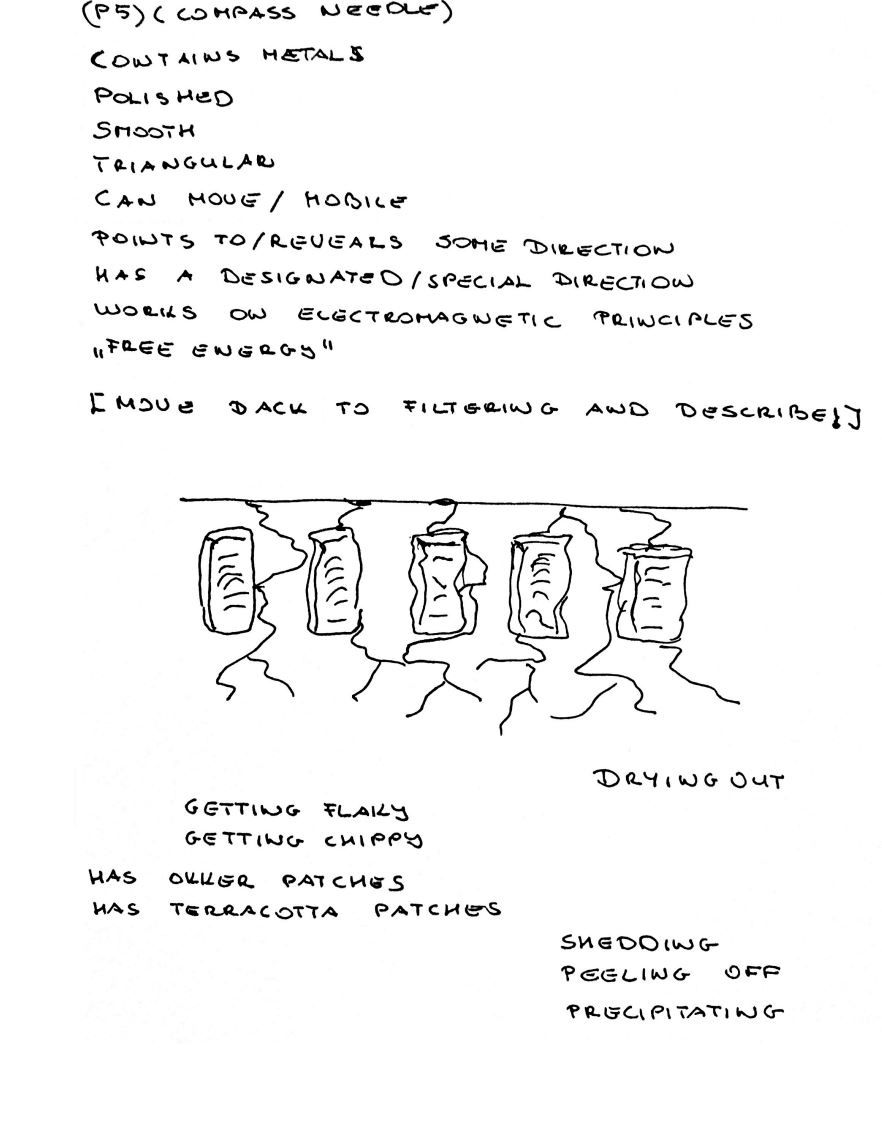 (P5) (COMPASS NEEDLE)
CONTAINS METALS
POLISHED
SMOOTH
TRIANGULAR
CAN MOVE / MOBILE
POINTS TO/REVEALS SOME DIRECTION
HAS A DESIGNATED/SPECIAL DIRECTION
WORKS ON ELECTROMAGNETIC PRINCIPLES
„FREE ENERGY"
[MOVE BACK TO FILTERING AND DESCRIBE!]
DRYING OUT
GETTING FLAKY
GETTING CHIPPY
HAS OKKER PATCHES
HAS TERRACOTTA PATCHES
SHEDDING
PEELING OFF
PRECIPITATING